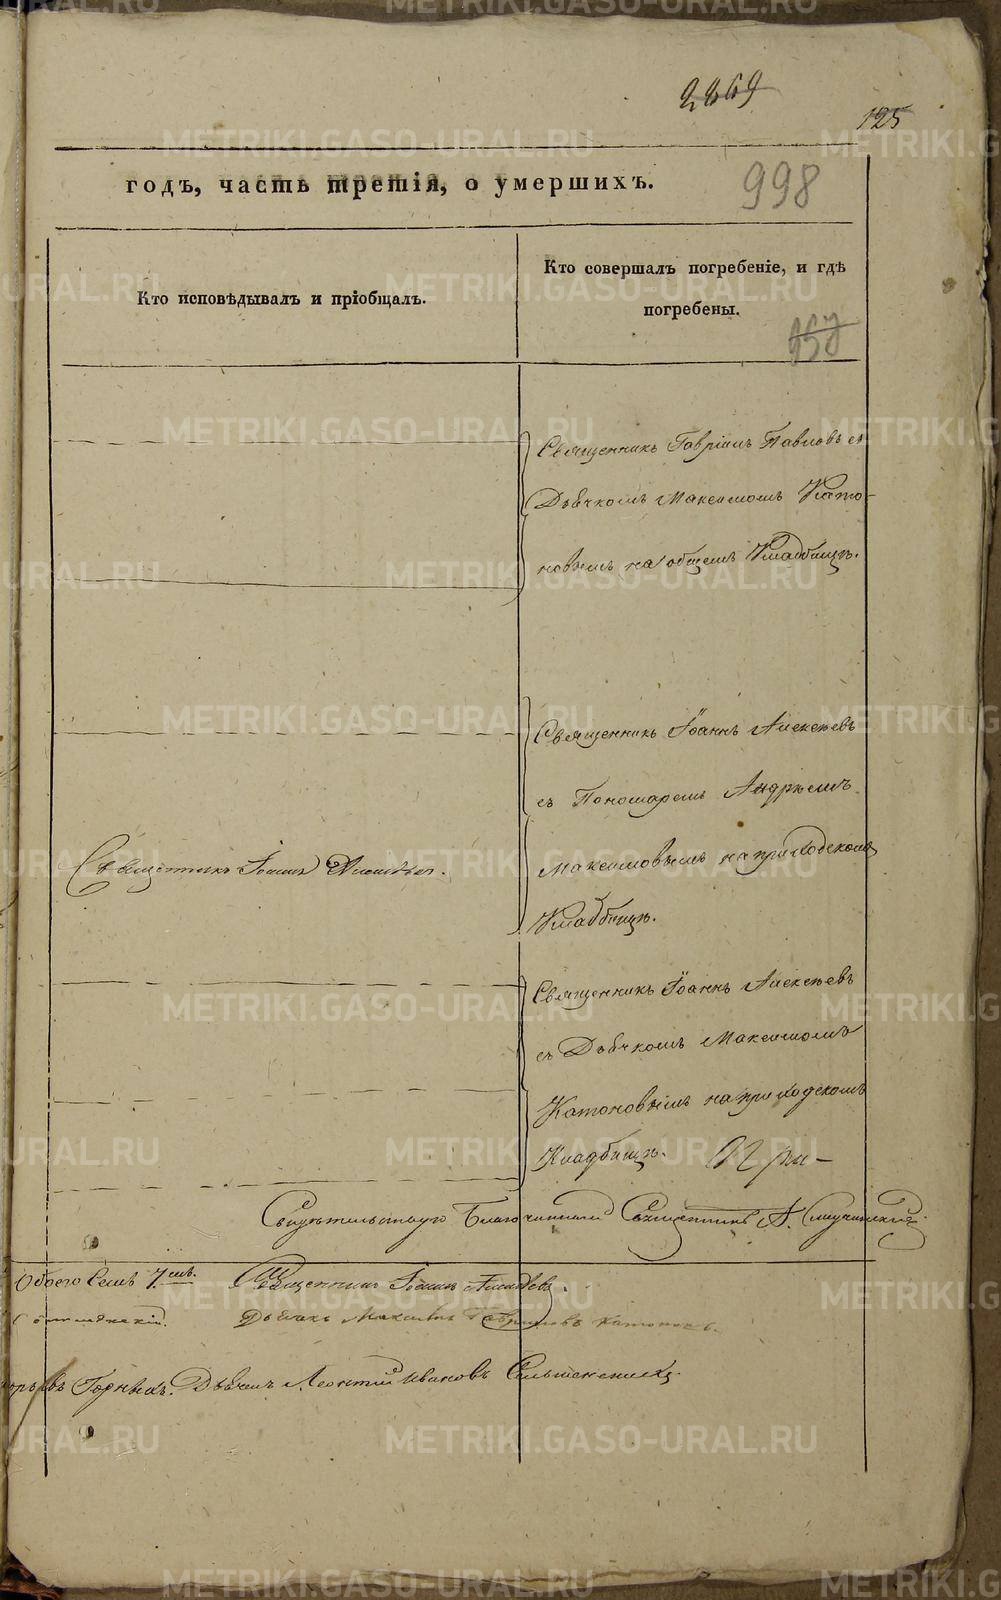 2869
125
годъ, часть третія, о умершихъ.
998
Кто исповѣдывалъ и пріобщалъ.
Кто совершалъ погребеніе, и гдѣ
погребены.
957
Священникъ Гавріилъ Павловъ съ
Дьячкомъ Максимомъ Като-
новымъ на общемъ Кладбищѣ.
Священникъ Іоаннъ Алексѣевъ
съ Пономаремъ Андреемъ
Максимовымъ на приходскомъ
Кладбищѣ.
Священникъ Іоаннъ Алексѣевъ
Священникъ Іоаннъ Алексѣевъ
съ Дьячкомъ Максимомъ
Катоновымъ на приходскомъ
Кладбищѣ.
Свидѣтельствую Благочинный Священникъ А.
Обоего 7 Священникъ Іоаннъ Алексѣевъ.
Дьячокъ Максимъ Гавриловъ Катоновъ.
Горныхъ. Дьячекъ Леонтій Ивановъ
METRIKI.GASO-URAL.RU